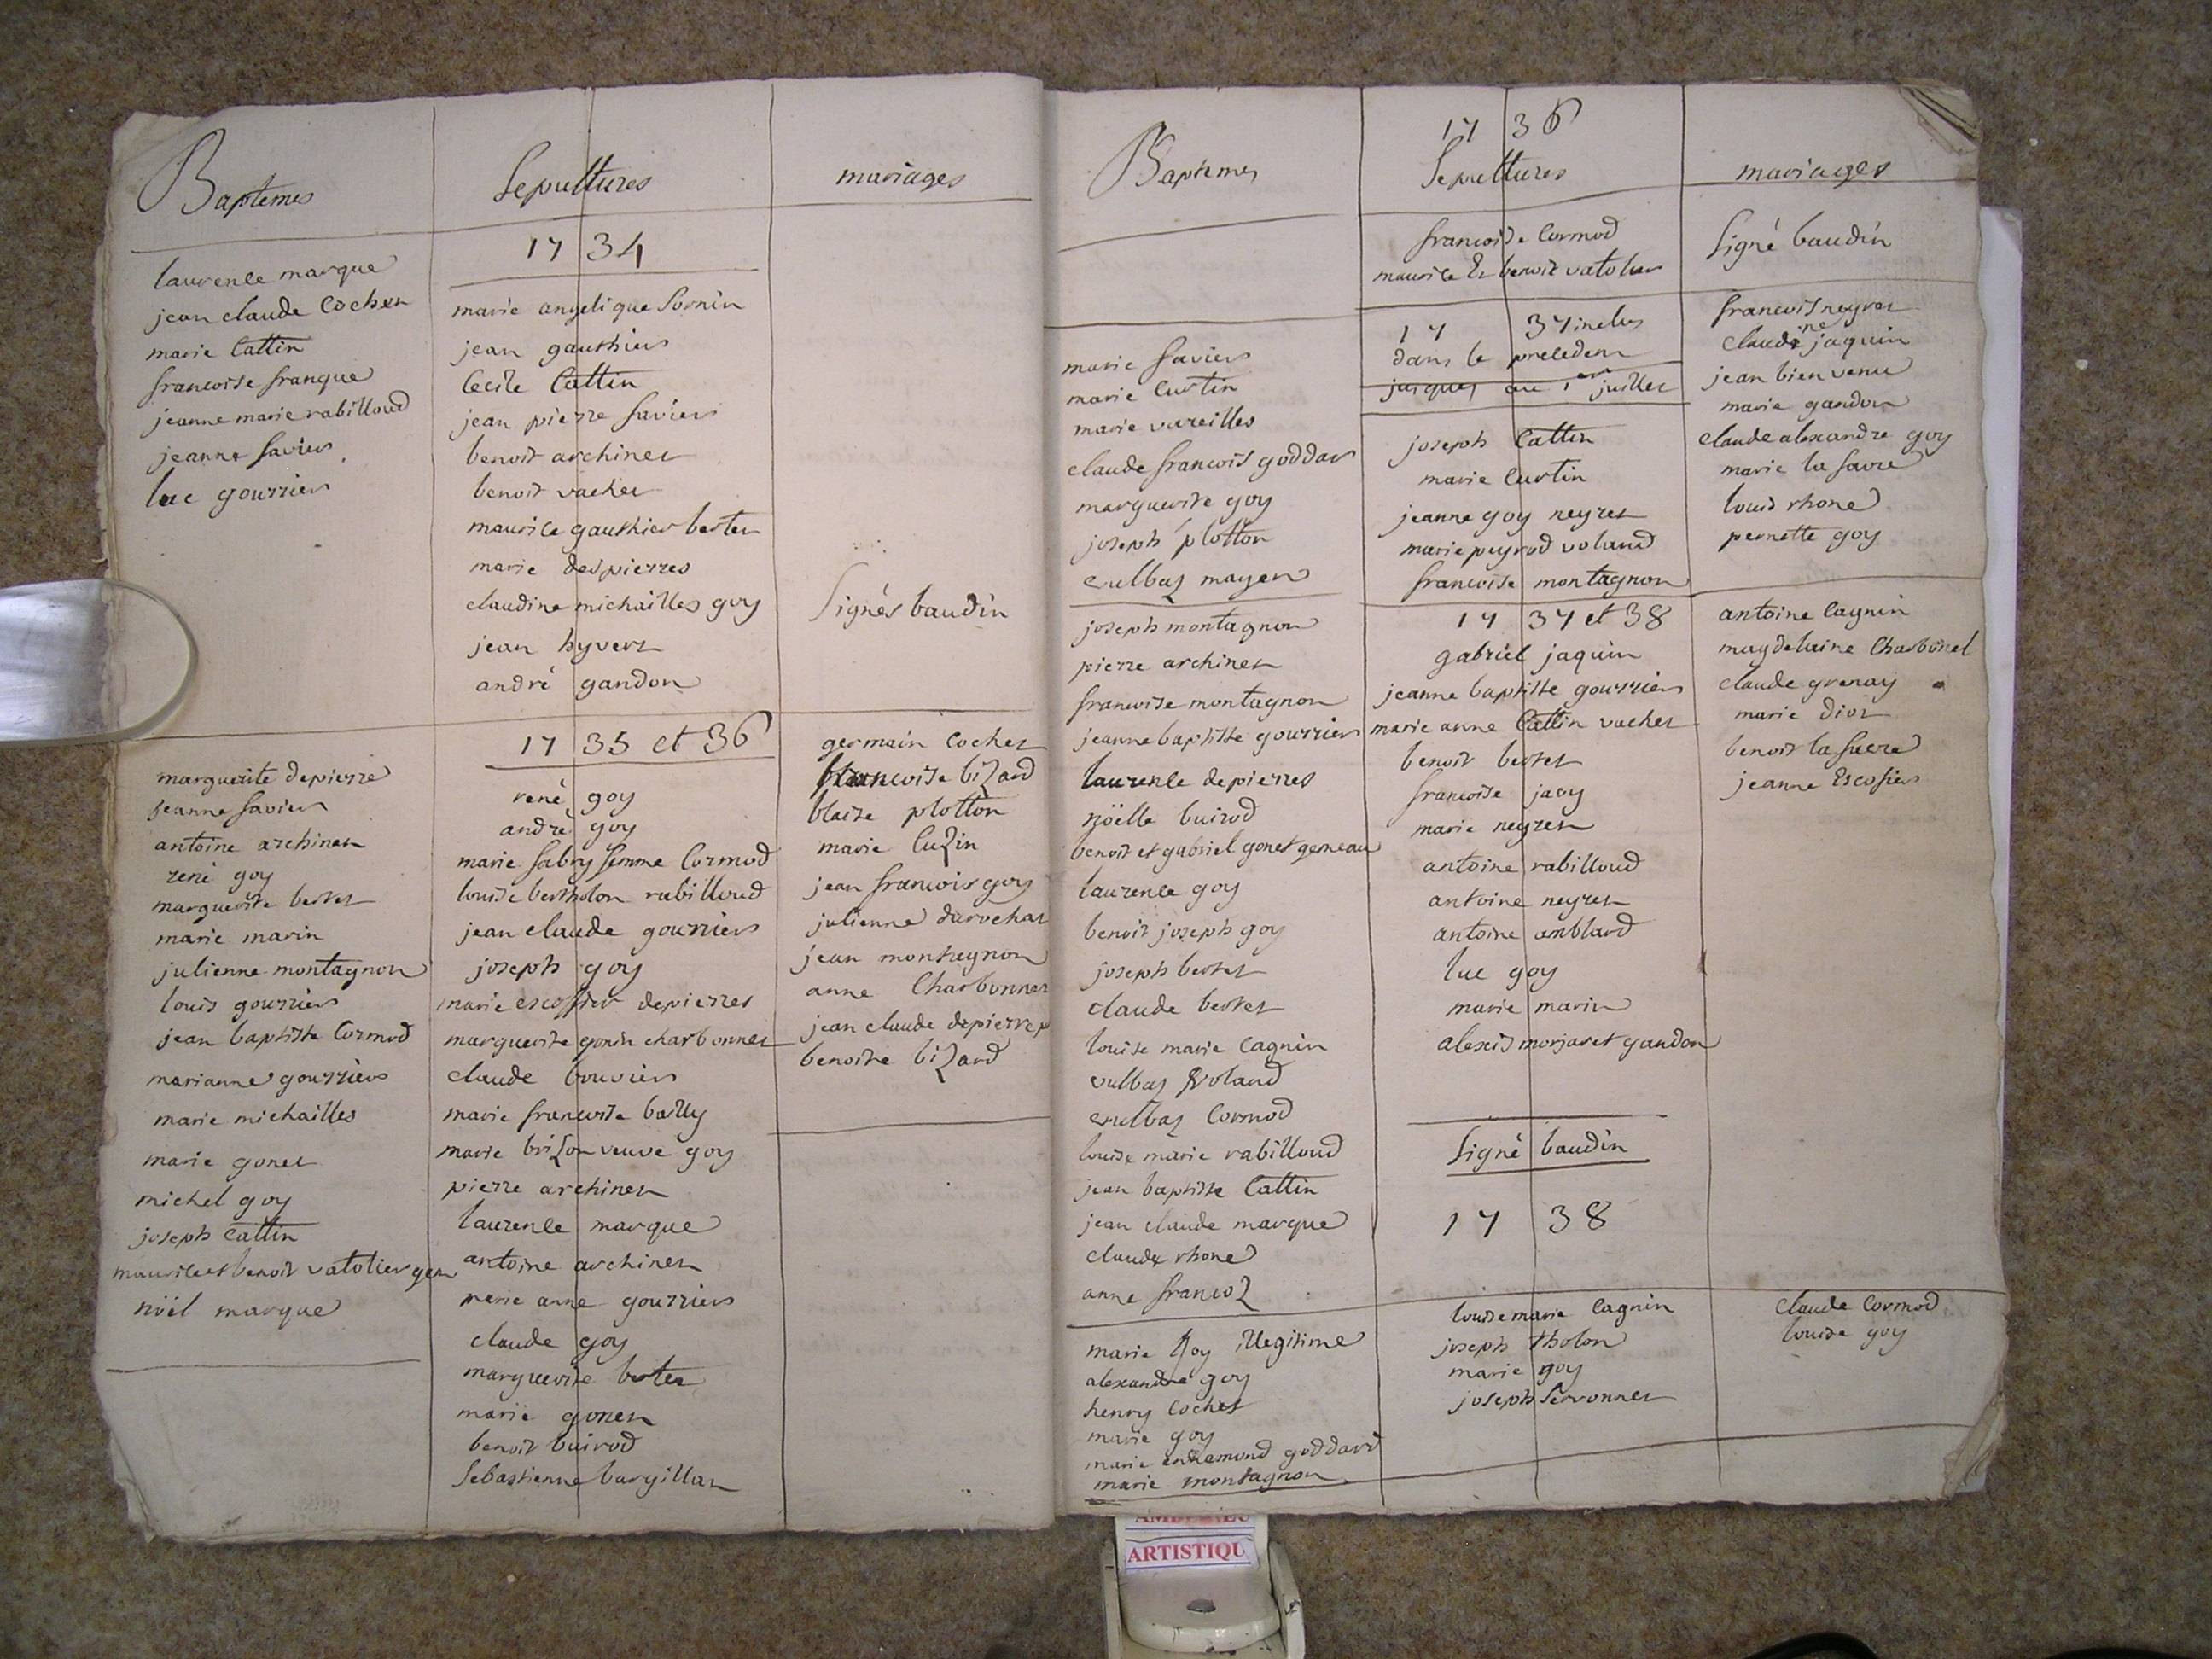 Baptemes
laurence marque
jean claude Cochet
marie Cattin
francoise franque
jeanne marie rabilloud
jeanne savier
luc gourrier
marguerite depierre
jeanne savier
antoine archinet
rené goy
marguerite bertet
marie marin
julienne montagnon
louis gourrier
jean baptiste Cormod
marianne gourrier
marie michailles
marie gonet
michel goy
joseph Cattin
maurice et benoit vatolier gem
nöel marque
Sepultures
1734
marie angelique sornin
jean gauthier
Cecile Cattin
jean pierre savier
benoit archinet
benoit vachet
maurice gauthier bertet
marie despierres
claudine michailles goy
jean hyvert
andré gandon
1735 et 36
rené goy
andré goy
marie fabry femme Cormod
louise bertholon rabilloud
jean claude gourrier
joseph goy
marie escoffier depierres
marguerite gonin charbonnet
claude bouvier
marie francoise bailly
marie brizon veuve goy
pierre archinet
laurence marque
antoine archinet
marie anne gourrier
claude goy
marguerite bertet
marie gonet
benoit buirod
Sebastienne bargillat
mariages
Signés baudin
germain Cochet
francoise bizard
blaise plotton
marie Cuzin
jean francois goy
julienne darochat
jean montregnon
anne Charbonnet
jean claude depierre
benoite bizard
Baptemes
marie savier
marie Curtin
marie vareilles
claude francois goddar
marguerite goy
joseph plotton
enelbaz mayen
joseph montagnon
pierre archinet
francoise montagnon
jeanne baptiste gourrier
laurence depierres
nöelle buirod
benoit et gabriel gonet gemeau
laurence goy
benoit joseph goy
joseph bertet
claude bertet
louise marie Cagnin
vulbaz voland
enelbaz Cormod
louise marie rabilloud
jean baptiste Cattin
jean claude marque
claude rhone
anne francoz
marie Roy illegitime
alexandre goy
henry Cochet
marie goy
marie goddard
marie montagnon
1736
Sepultures
francoise Cormod
maurice et benoit vatolier
1737 inclus
dans le precedent
jusques au 1er juillet
joseph Cattin
marie Curtin
jeanne goy neyret
marie peyrod voland
francoise montagnon
1737 et 38
gabriel jaquin
jeanne baptiste gourrier
marie anne Cattin vachet
benoit bertet
francoise jacy
marie neyret
antoine rabilloud
antoine neyret
antoine amblard
luc goy
marie marin
alexis morjaret gandon
Signé baudin
1738
louise marie Cagnin
joseph tholon
marie goy
joseph Servonnet
mariages
Signé baudin
francois neyret
claudine jaquin
jean bienvenu
marie gandon
claude alexandre goy
marie la favre
louis rhone
pernette goy
antoine Cagnin
magdelaine Charbonel
claude grenay
marie diot
benoit la
jeanne Escofier
Claude Cormod
louise goy
ARTISTIQU